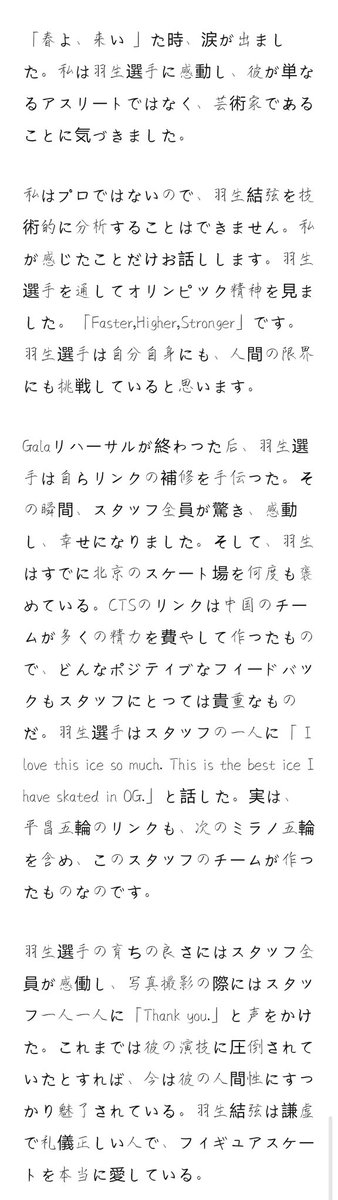 「春よ、来い 」た時、涙が出まし
た。私は羽生選手に感動し、彼が単な
るアスリートではなく、芸術家である
ことに気づきました。
私はプロではないので、羽生結弦を技
術的に分析することはできません。私
が感じたことだけお話しします。羽生
選手を通してオリンピック精神を見ま
した。「Faster,Higher,Stronger」です。
羽生選手は自分自身にも、人間の限界
にも挑戦していると思います。
Galaリハーサルが終わつた后、羽生選
手は自らリンクの補修を手伝つた。そ
の瞬間、スタッフ全員が驚き、感動
し、幸せになりました。そして、羽生
はすでに北京のスケート場を何度も褒
めている。CTSのリンクは中国のチー
ムが多くの精力を費やして作つたもの
で、どんなポジティブなフィードバッ
クもスタッフにとつては貴重なもの
だ。羽生選手はスタッフの一人に「 I
love this ice so much. This is the best ice I
have skated in OG.」と話した。実は、
平昌五輪のリンクも、次のミラノ五輪
を含め、このスタッフのチームが作つ
たものなのです。
羽生選手の育ちの良さにはスタッフ全
員が感働し、写真撮影の際にはスタッ
フ一人一人に「Thank you.」と声をかけ
た。これまでは彼の演技に圧倒されて
いたとすれば、今は彼の人間性にすつ
かり魅了されている。羽生結弦は謙虚
で礼儀正しい人で、フイギュアスケー
トを本当に愛している。